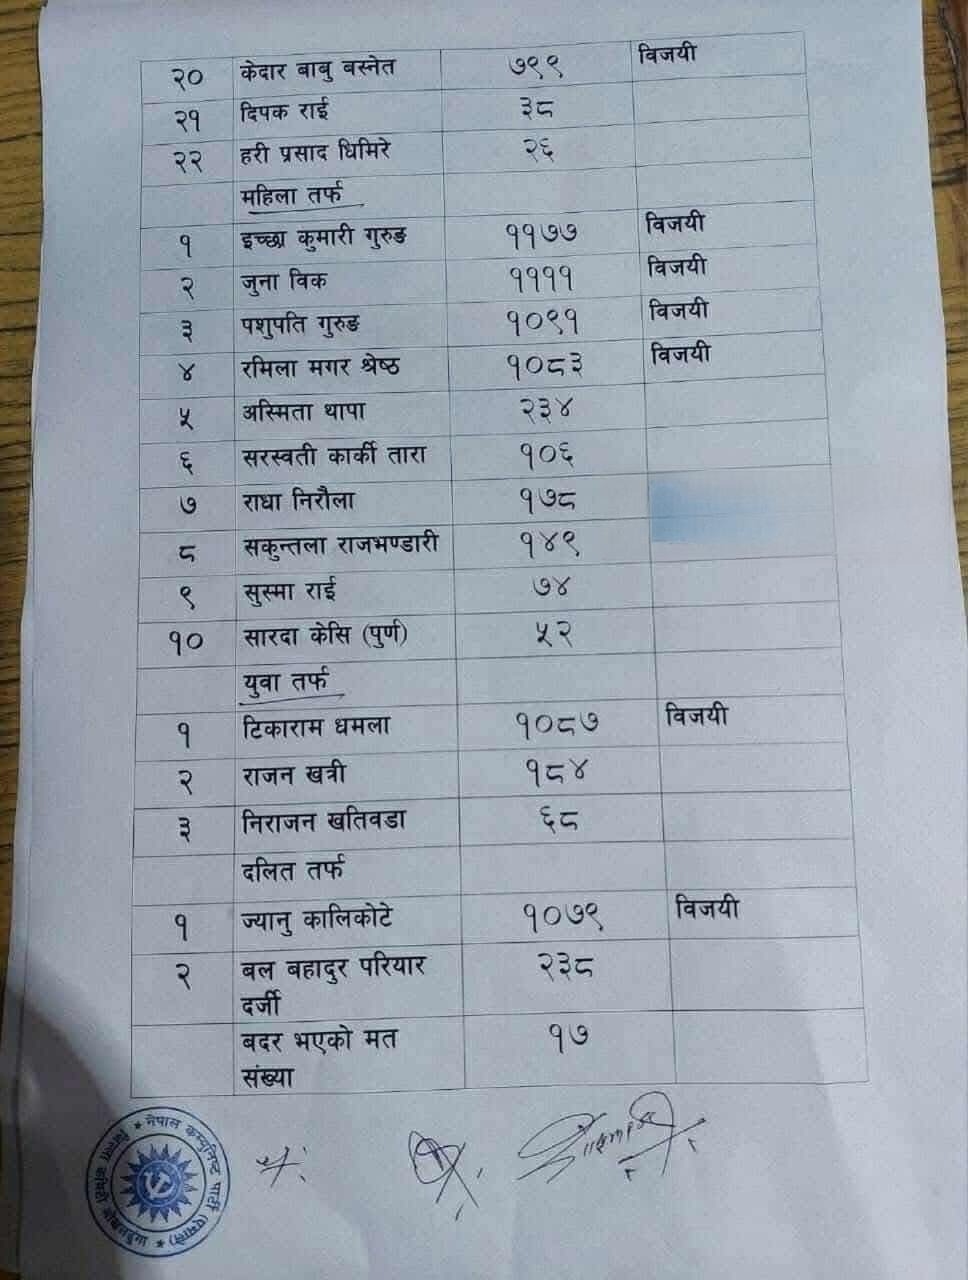 २० केदार बाबु बस्नेत ७९९ विजयी
२१ दिपक राई ३८
२२ हरी प्रसाद घिमिरे २६
महिला तर्फ
१ इच्छा कुमारी गुरुङ ११७७ विजयी
२ जुना विक ११११ विजयी
३ पशुपति गुरुङ १०९१ विजयी
४ रमिला मगर श्रेष्ठ १०८३ विजयी
५ अस्मिता थापा २३४
६ सरस्वती कार्की तारा १०६
७ राधा निरौला १७८
८ सकुन्तला राजभण्डारी १४९
९ सुस्मा राई ७४
१० सारदा केसि (पुर्ण) ५२
युवा तर्फ
१ टिकाराम धमला १०८७ विजयी
२ राजन खत्री १८४
३ निराजन खतिवडा ६८
दलित तर्फ
१ ज्यानु कालिकोटे १०७९ विजयी
२ बल बहादुर परियार २३८
दर्जी
बदर भएको मत १७
संख्या
नेपाल कम्युनिष्ट पार्टी (एमाले)
जिल्ला कमिटी ओखलढुंगा